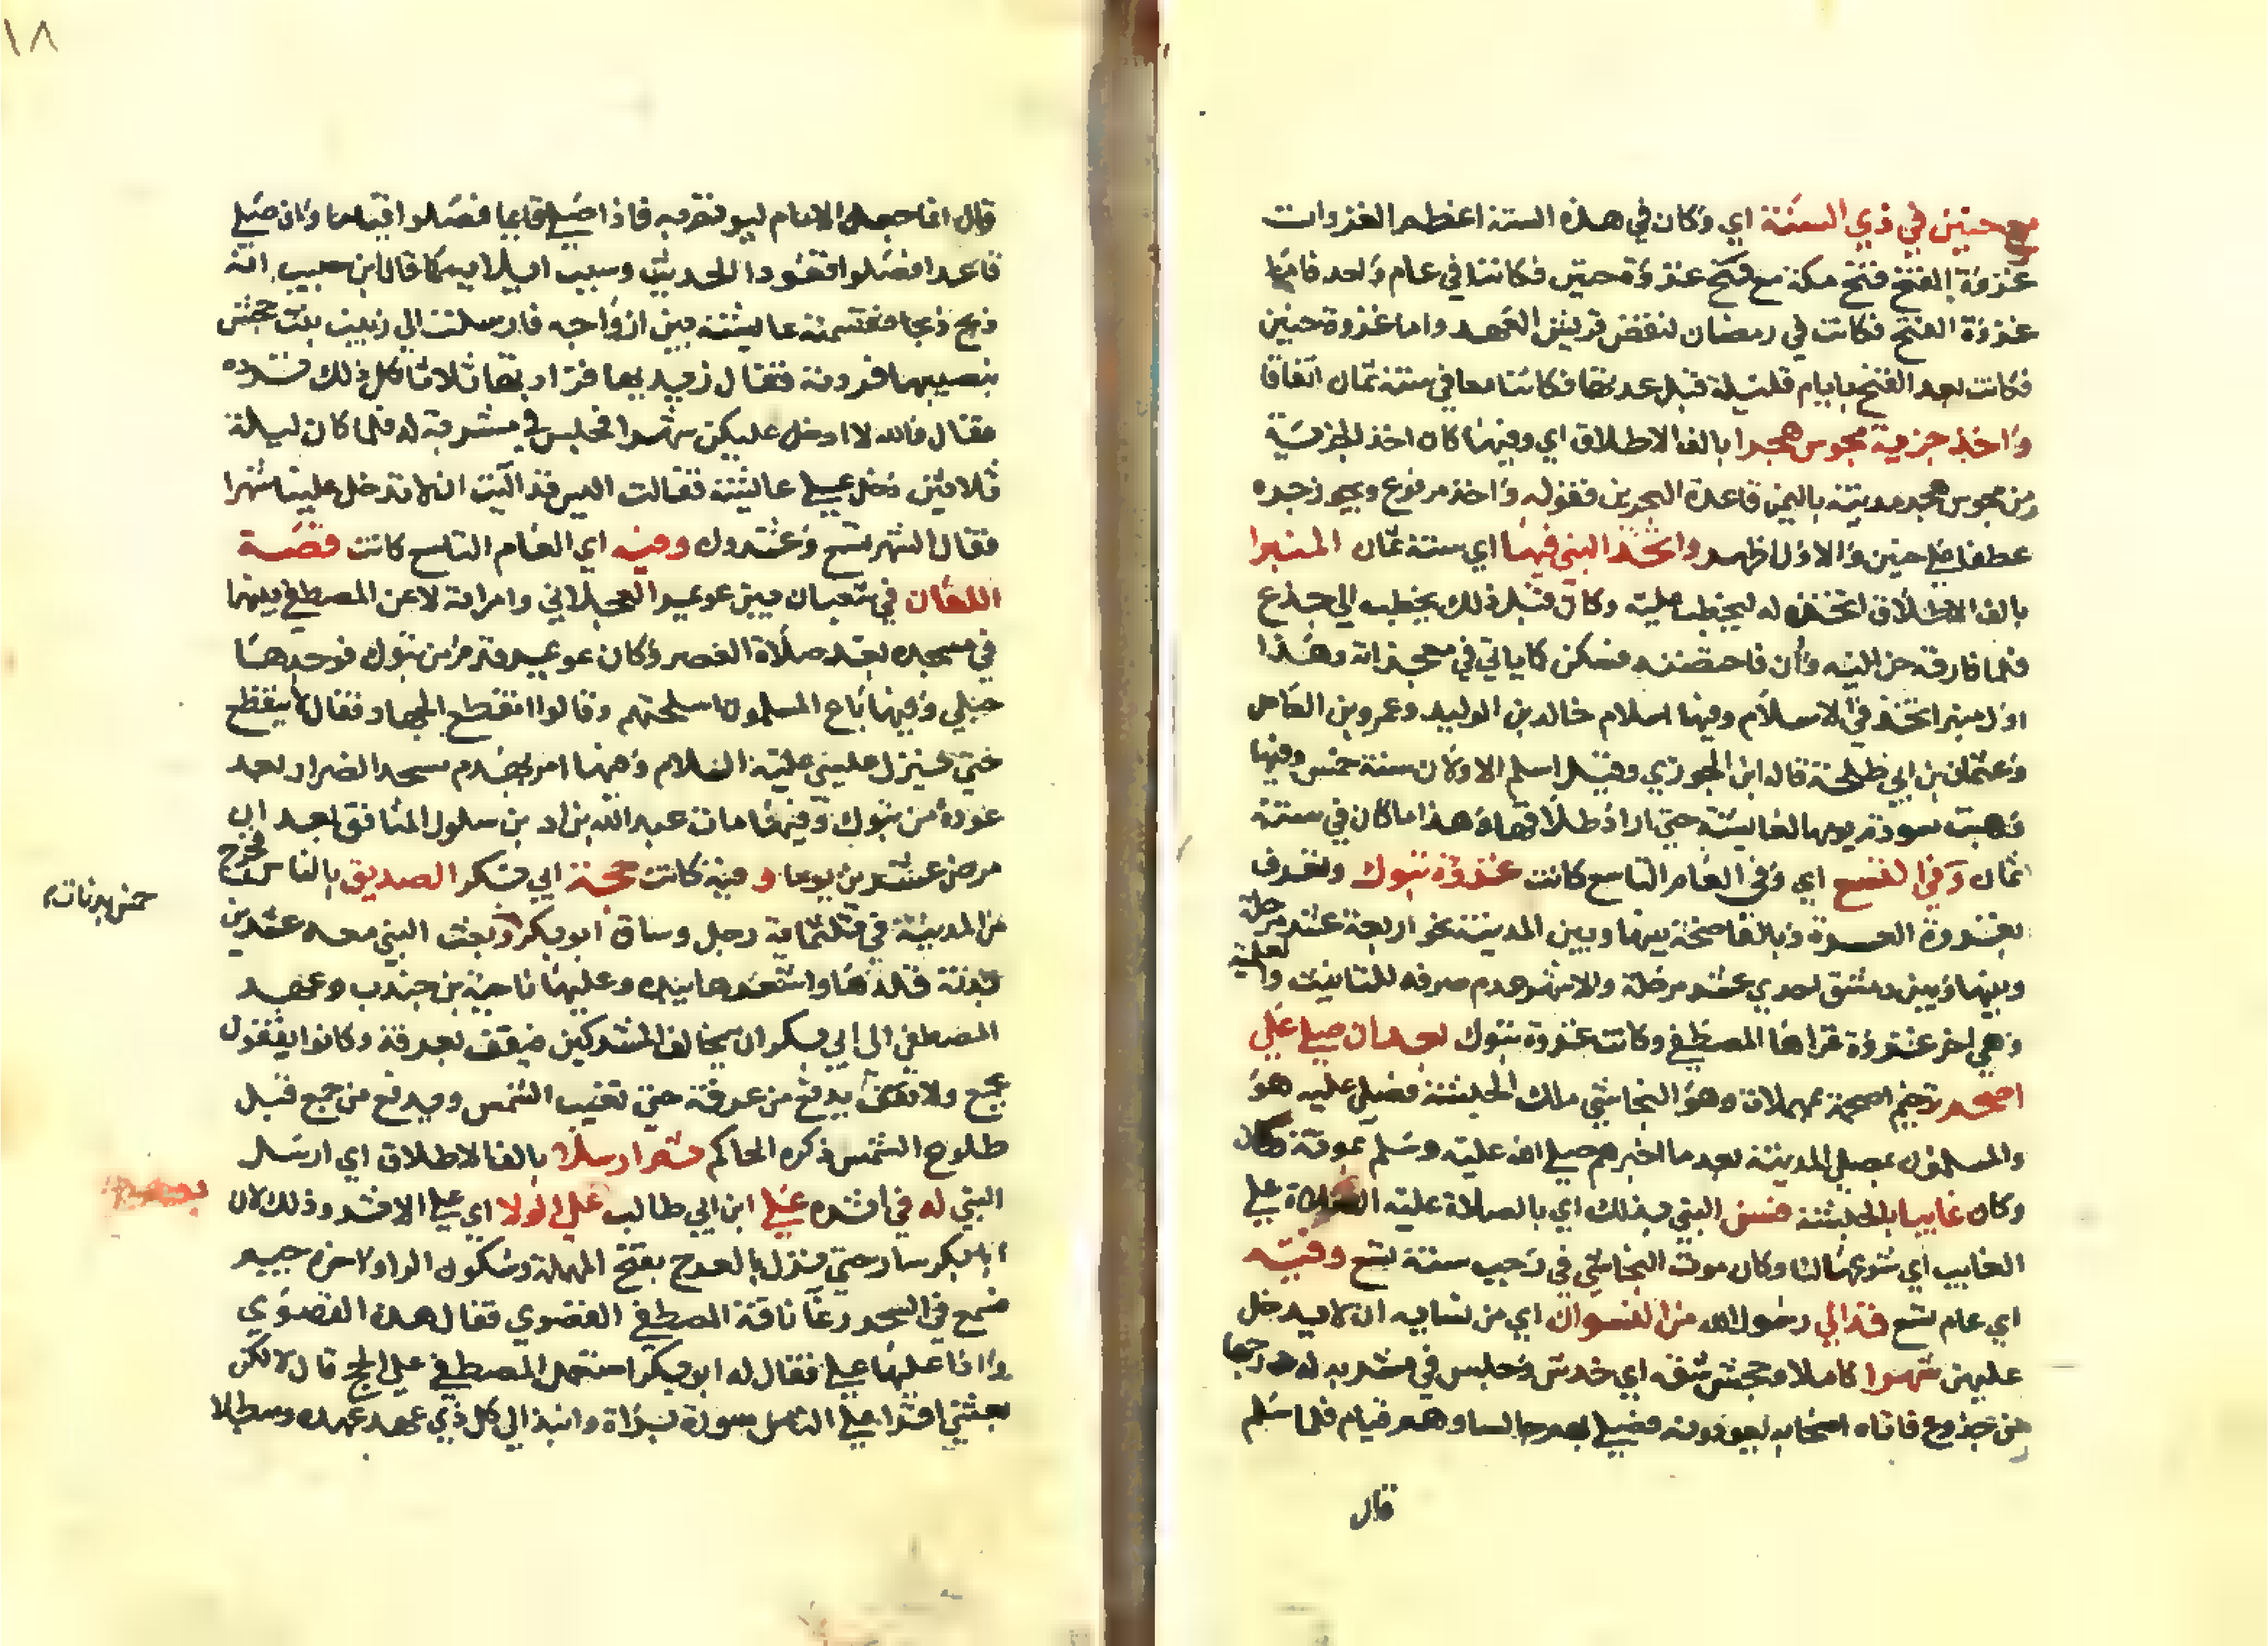 مع حنين في ذي السنة اي وكان في هذه السنة اعظم الغزوات
غزوة الفتح فتح مكة مع فتح غزوة حنين فكانتا في عام واحد فاما
غزوة الفتح فكانت في رمضان لنقض قريش العهد واما غزوة حنين
فكانت بعد الفتح بايام قليلة قبل عد بها فكانتا معا في سنة ثمان اتفاقا
واخذ جزية مجوس هجرا بالف الاطلاق اي وفيها كان اخذ الجزية
من مجوس هجر مدينة باليمن قاعدة البحرين فقوله واخذ مرفوع ويجوز جره
عطفا على حنين والاول اظهر واتخذ النبي فيها اي سنة ثمان المنبرا
بالف الاطلاق اتخذه له ليخطب عليه وكان قبل ذلك يخطب الي جذع
فلما فارقه حن اليه وأن فاحتضنه فسكن كاياتي في معجزاته وهذا
اول منبر اتخذ في الاسلام وفيها اسلام خالد بن الوليد وعمرو بن العاص
وعثمان بن ابي طلحة قاله ابن الجوزي وقيل اسلم الاولان سنة خمس وفيها
وهبت سودة يومها لعايشة حتي اراد طلاقها وهذا ما كان في سنة
ثمان وفي التسع اي وفي العام التاسع كانت غزوة تبوك وتعرف
بغزوة العسرة وبالفاضحة بينها وبين المدينة نحو اربعة عشر مرحلة
وبينها وبين دمشق احدي عشر مرحلة والاشهر عدم صرفه للتانيث والعلمية
وهي اخر غزوة غزاها المصطفي وكانت غزوة تبوك بعد ان صلي علي
اصحم ترخيم اصحمة بمهملات وهو النجاشي ملك الحبشة فصلي عليه هو
والمسلمون بمصلي المدينة بعد ما اخبرهم صلي الله عليه وسلم بموته
وكان غايبا بالحبشة فسن النبي بذلك اي بالصلاة عليه الصلاة علي
الغايب اي شرعها لنا وكان موت النجاشي في رجب سنة تسع وفيه
اي عام تسع قد الي رسول الله من النسوان اي من نسايه ان لا يدخل
عليهن شهرا كاملا وجحش شقه اي خدش وجلس في مشربة له درجها
من جذوع فاتاه اصحابه يعودونه فصلي بهم جالسا وهم قيام فلما سلم
قال
١٨
قال انما جعل الامام ليوتم به فاذا صلي قايما فصلوا قياما وان صلي
قاعدا فصلوا قعودا الحديث وسبب ايلايه كما قال ابن حبيب انه
ذبح ذبحا فقسمته عايشة بين ازواجه فارسلت الي زينب بنت جحش
بنصيبها فردته فقال زيديها فزادتها ثلاثا كل ذلك ترده
فقال والله لا ادخل عليكن شهرا فجلس في مشربة له فلما كان ليلة
ثلاثين دخل علي عايشة فقالت اليس قد آليت ان لا تدخل علينا شهرا
فقال الشهر تسع وعشرون وفيه اي العام التاسع كانت قصة
اللعان في شعبان بين عويمر العجلاني وامراته لاعن المصطفي بينهما
في مسجده بعد صلاة العصر وكان عويمر قدم من تبوك فوجدها
حبلي وفيها باع المسلمون اسلحتهم وقالوا انقطع الجهاد فقال لا ينقطع
حتي ينزل عيسي عليه السلام وفيها امر بهدم مسجد الضرار بعد
عوده من تبوك وفيها مات عبد الله بن ابي بن سلول المنافق بعد ان
مرض عشرين يوما وفيه كانت حجة ابي بكر الصديق بالناس فخرج
من المدينة في ثلثماية رجل وساق ابو بكر وبعث النبي معه عشرين
خمس بدنات
بدنة قلدها واشعرها بيده وعليها ناجية بن جندب وعهد
المصطفي الي ابي بكر ان يخالف المشركين فيقف بعرفة وكانوا يقفون
بجمع ولا يدفع من عرفة حتي تغيب الشمس ويدفع من جمع قبل
طلوع الشمس ذكره الحاكم ثم ارسلا بالف الاطلاق اي ارسل
النبي له في اثره علي ابن ابي طالب علي الولا اي علي الاثر وذلك لان
ابا بكر سار حتي نزل بالعرج بفتح المهملة وسكون الرا واخره جيم
فسمع في السحر رغا ناقة المصطفي القصوي فقال هذه القصوي
واذا عليها علي فقال له ابو بكر استعمل المصطفي علي الحج قال لا لكن
بعثني اقرا علي الناس سورة براة وانبذ الي كل ذي عهد عهده وسطلا